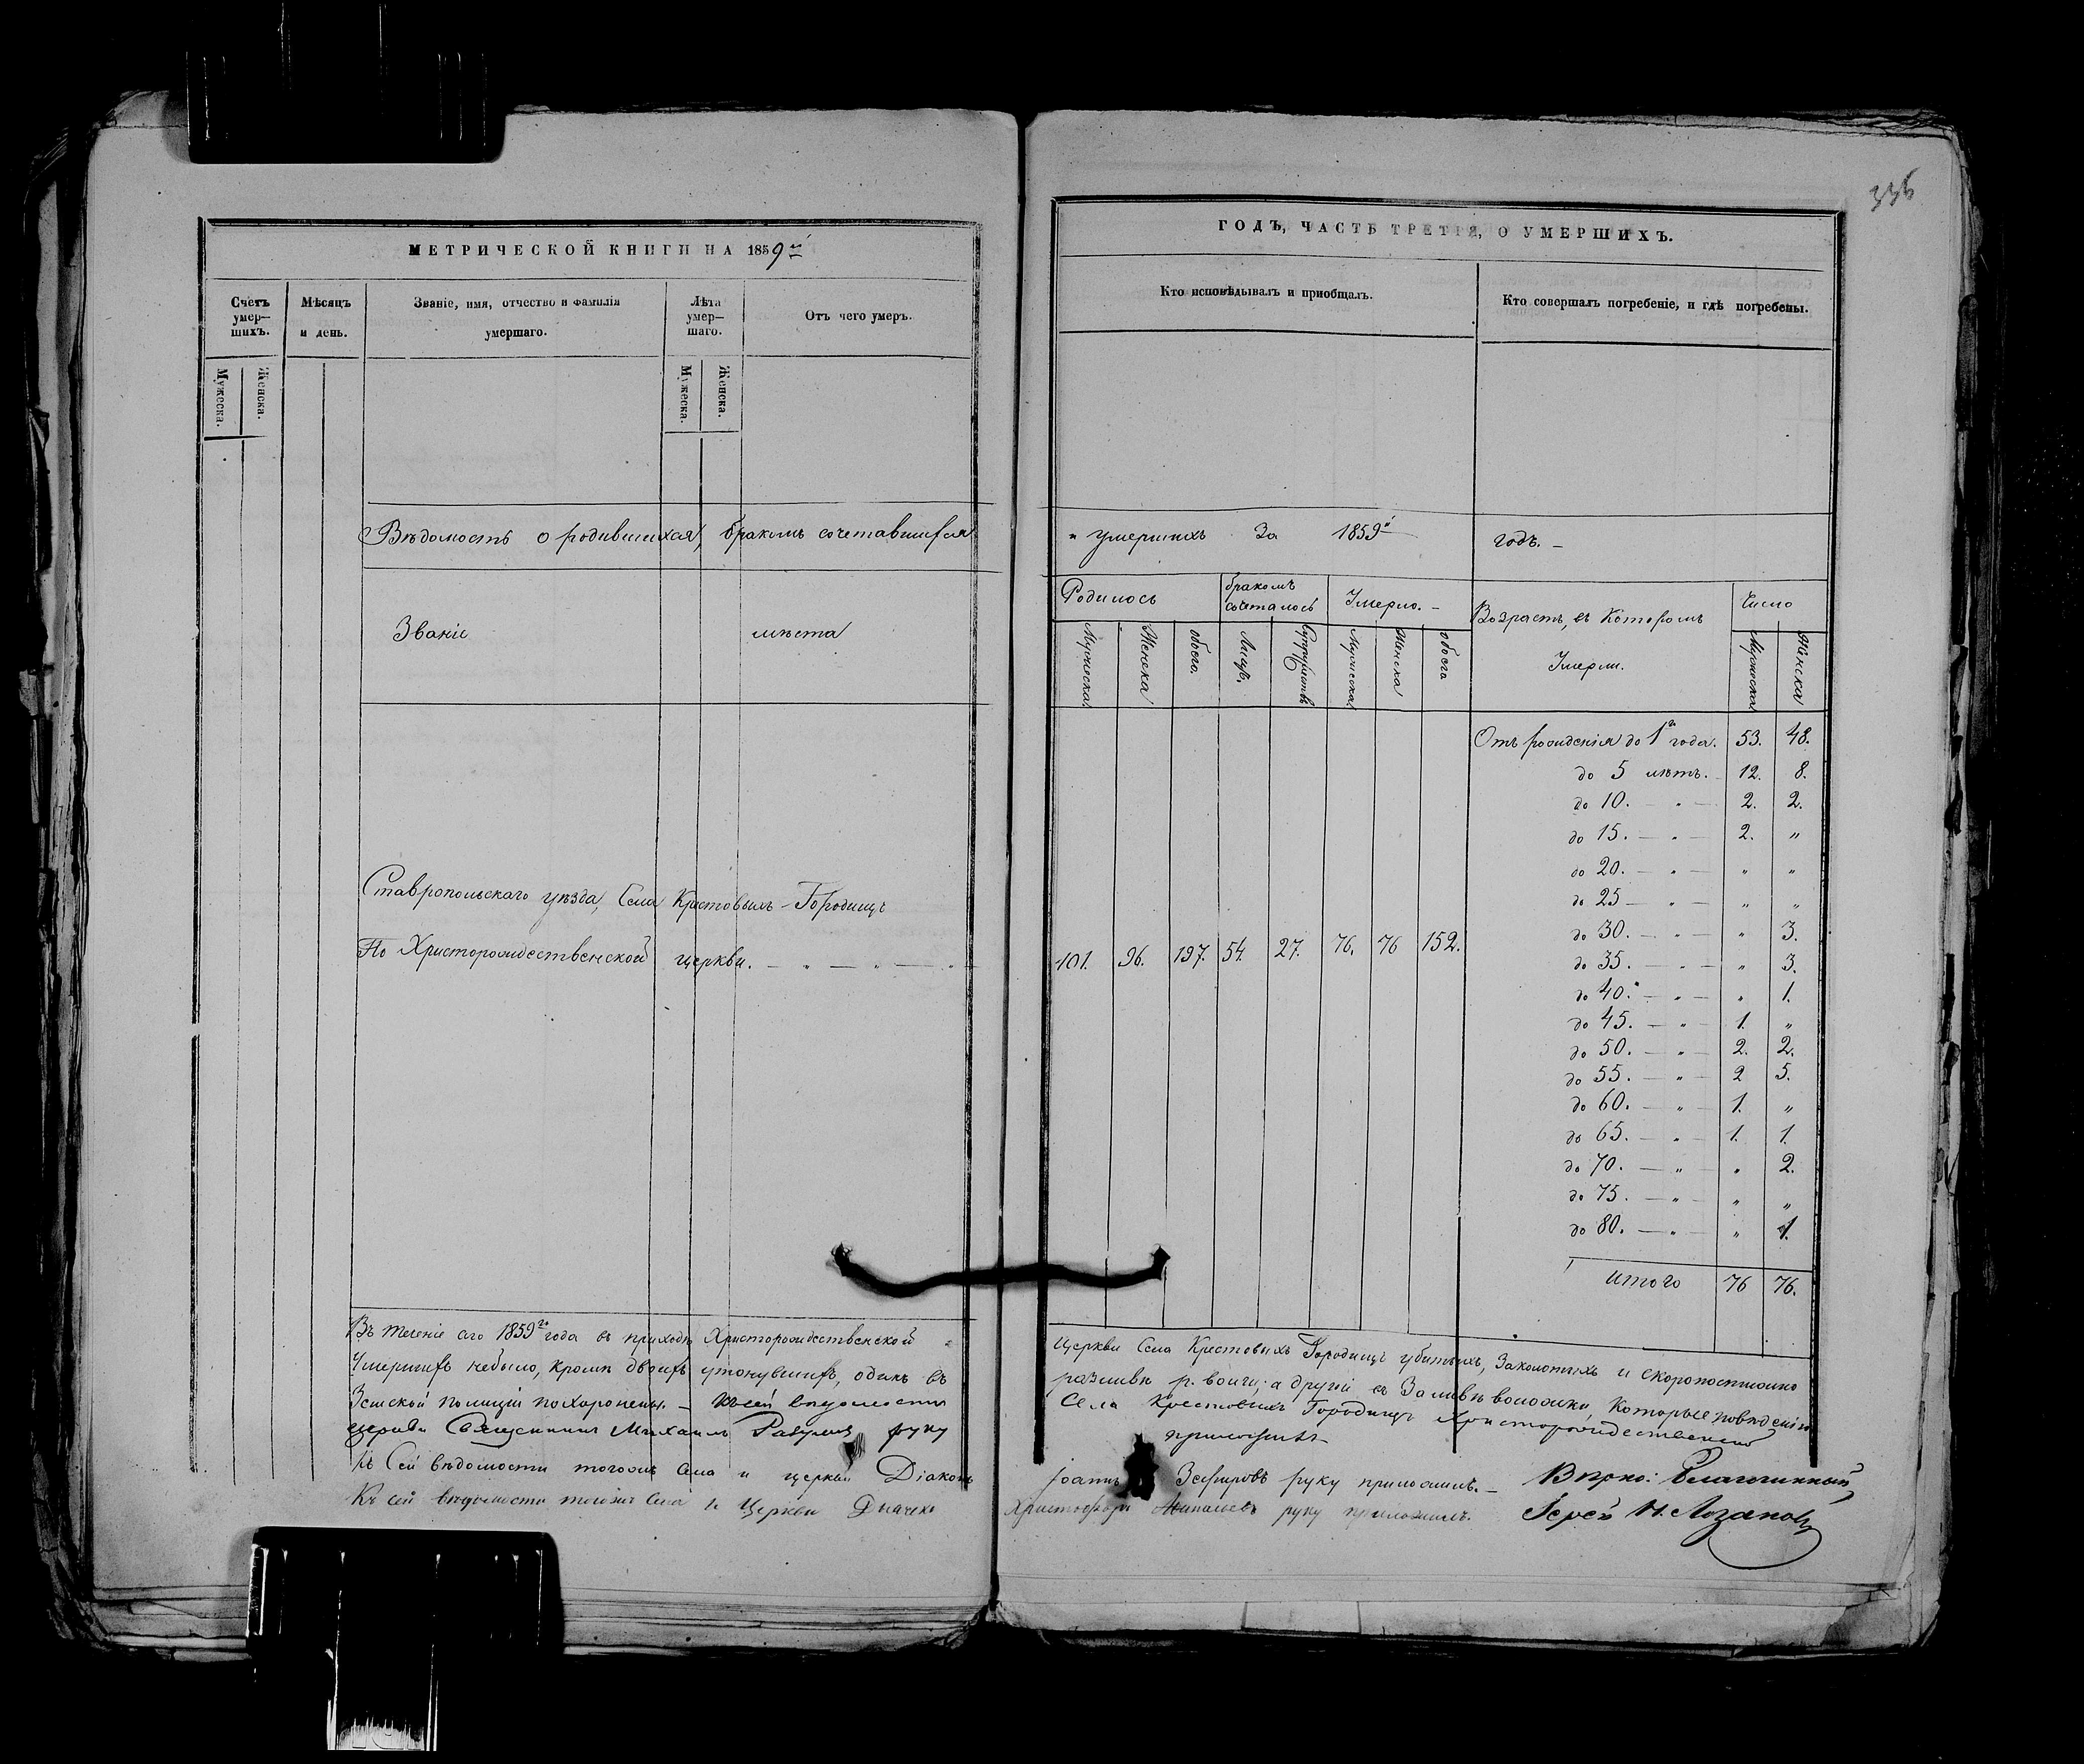 336
МЕТРИЧЕСКОЙ КНИГИ НА 1859й
Счетъ умер—шихъ.
Мѣсяцъ и день.
Званіе, имя, отчество и фамилія умершаго.
Лѣта умер—шаго.
Отъ чего умеръ.
Мужеска. Женска.
Мужеска. Женска.
ГОДЪ, ЧАСТЬ ТРЕТІЯ, О УМЕРШИХЪ.
Кто исповѣдывалъ и приобщалъ.
Кто совершалъ погребеніе, и гдѣ погребены.
Вѣдомость о родившихся, бракомъ сочетавшихся
и умершихъ За 1859й годъ. –
Званіе мѣста
Родилось
бракомъ сочеталось
Умерло. –
Возрастъ, въ Которомъ Умерли.
Число
Мужеска Женска обоего. Лицъ. Супружествъ Мужеска Женска обоего
Мужеска Женска
Ставропольскаго уѣзда, Села Крестовыхъ-Городищъ
По Христорождественской церкви. — „ — „ — „ —
101. 96. 197. 54. 27. 76. 76 152.
Отъ рожденія до 1го года. 53. 48.
до 5 лѣтъ. 12. 8.
до 10. — „ — 2. 2.
до 15. — „ — 2. „
до 20. — „ — „ „
до 25 — „ — „ „
до 30. — „ — „ 3.
до 35. — „ — „ 3.
до 40. — „ — „ 1.
до 45. — „ — 1. „
до 50. — „ — 2. 2.
до 55. — „ — 2 5.
до 60. — „ — 1. „
до 65. — „ — 1. 1.
до 70. — „ — „ 2.
до 75. — „ — „ „
до 80. — „ — „ 1.
итого 76 76.
Въ теченіе сего 1859го года въ приходѣ Христорождественской церкви Села Крестовыхъ Городищъ убитыхъ, Заколотыхъ и скоропостижно
Умершихъ небыло, кромѣ двоихъ утонувшихъ, одинъ въ разливѣ р. волги, а другій въ Заливѣ воложки, Которые
Земской полиціи похоронены. — Къ сей вѣдомости Села Крестовыхъ Городищъ Христорождественской
церкви Священникъ Михаилъ руку приложилъ
Къ Сей вѣдомости тогожъ Села и церкви Діаконъ Іоаннъ Зефировъ руку приложилъ. –
Къ сей вѣдомости тогожъ Села и Церкви Дьячекъ Христофоръ руку приложилъ.
Благочинный
Іерей Н. Лозановъ